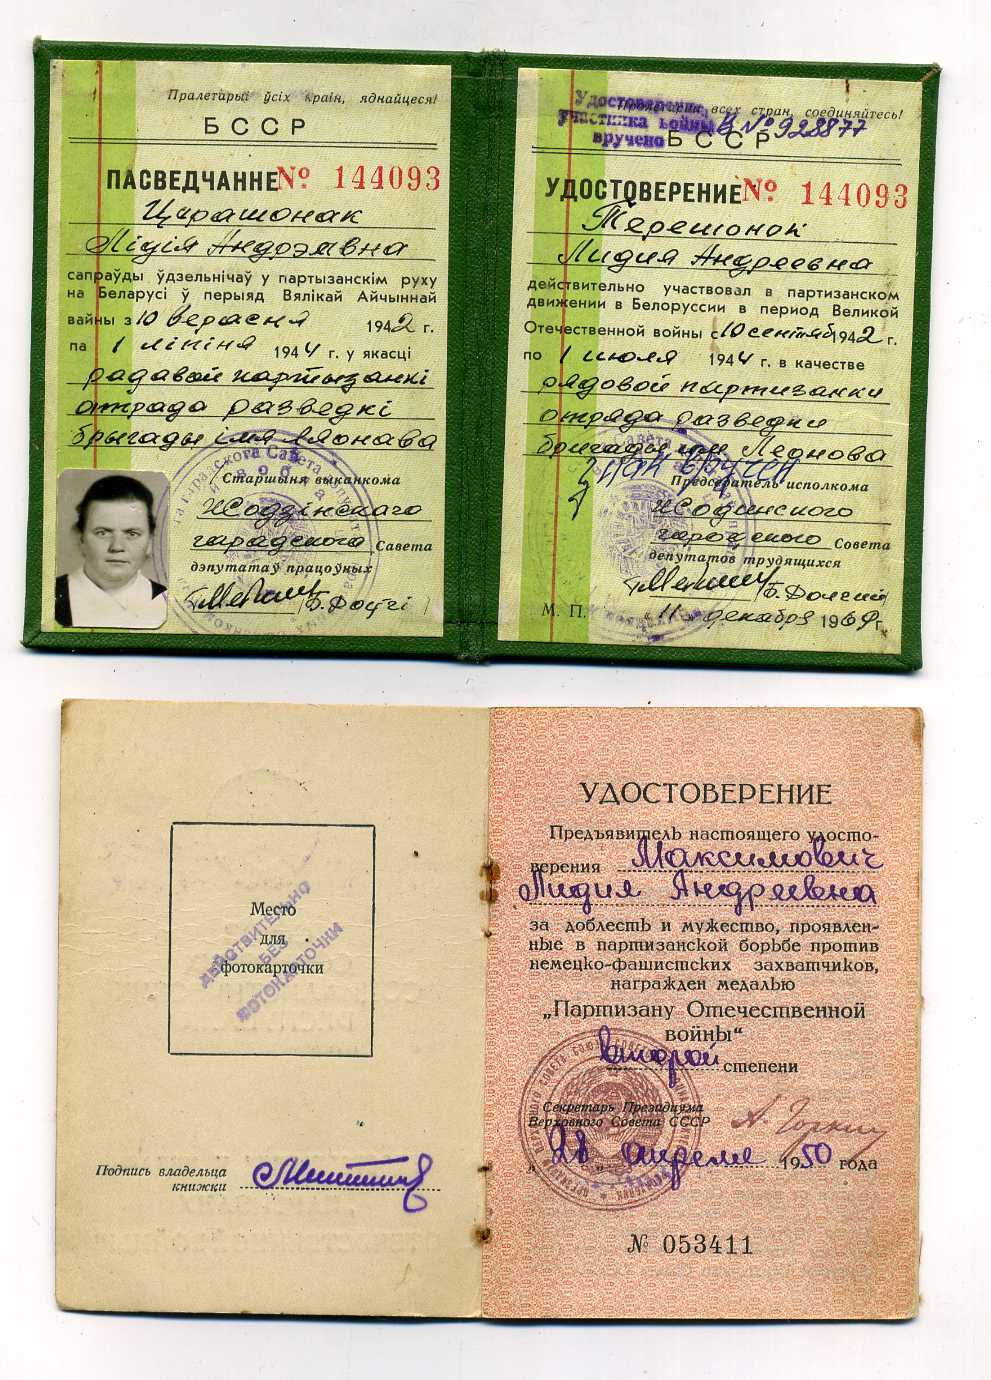 Пралетарыі ўсіх краін, яднайцеся!
БССР
ПАСВЕДЧАННЕ № 144093
Цярашонак
Лідія Андрэеўна
сапраўды ўдзельнічаў у партызанскім руху
на Беларусі ў перыяд Вялікай Айчыннай
вайны з 10 верасня 1942 г.
па 1 ліпіня 1944 г. у якасці
радавой партызанкі
атрада разведкі
брыгады імя Ляонава
Старшыня выканкома
Жодзінскага
гарадскога Савета
дэпутатаў працоўных
Б. Доўгі
Пролетарии всех стран, соединяйтесь!
Удостоверение
участника войны
вручено
В № 928877
БССР
УДОСТОВЕРЕНИЕ № 144093
Терешонок
Лидия Андреевна
действительно участвовал в партизанском
движении в Белоруссии в период Великой
Отечественной войны с 10 сентяб 1942 г.
по 1 июля 1944 г. в качестве
рядовой партизанки
отряда разведки
бригады им. Леонова
знак вручен
Председатель исполкома
Жодинского
городского Совета
депутатов трудящихся
Б. Долгий
М. П. „11„ декабря 1969 г.
Место
для
фотокарточки
ДЕЙСТВИТЕЛЬНО
БЕЗ
ФОТОКАРТОЧКИ
Подпись владельца
книжки
УДОСТОВЕРЕНИЕ
Предъявитель настоящего удосто-
верения Максимович
Лидия Андреевна
за доблесть и мужество, проявлен-
ные в партизанской борьбе против
немецко-фашистских захватчиков,
награжден медалью
„Партизану Отечественной
войны“
второй степени
Секретарь Президиума
Верховного Совета СССР
А. Горкин
„28„ апреля 1950 года
№ 053411